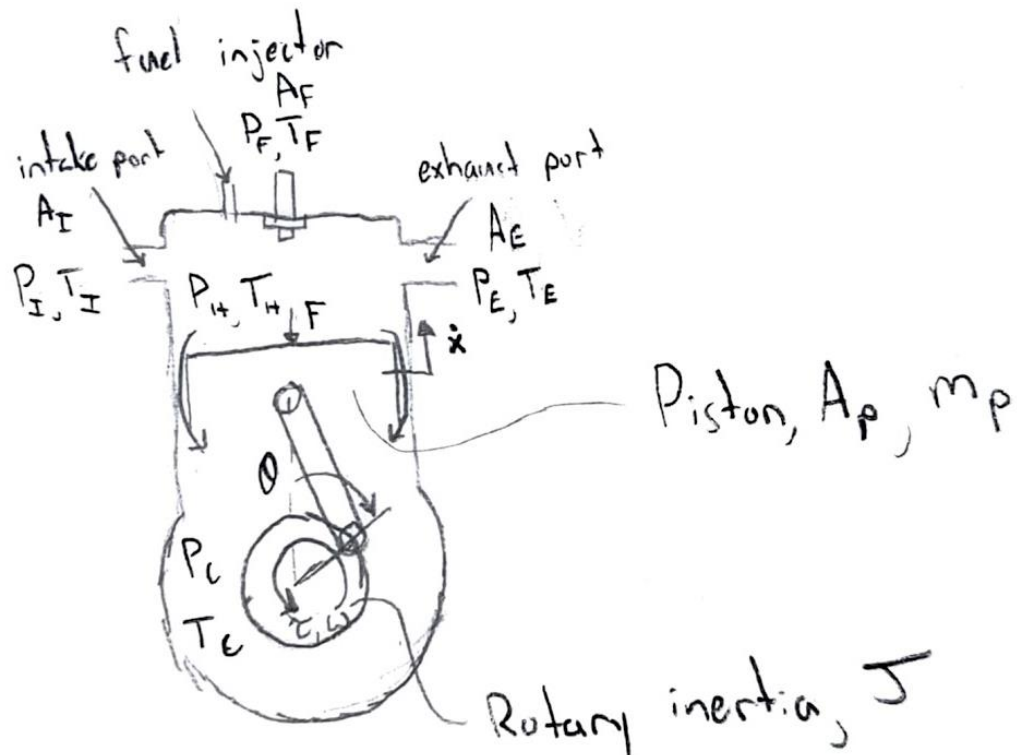 fuel injector
A_F
P_F, T_F
intake port
A_I
P_I, T_I
exhaust port
A_E
P_E, T_E
P_H, T_H
F
ẋ
Piston, A_p, m_p
θ
P_C
T_C
τ, ω
Rotary inertia, J